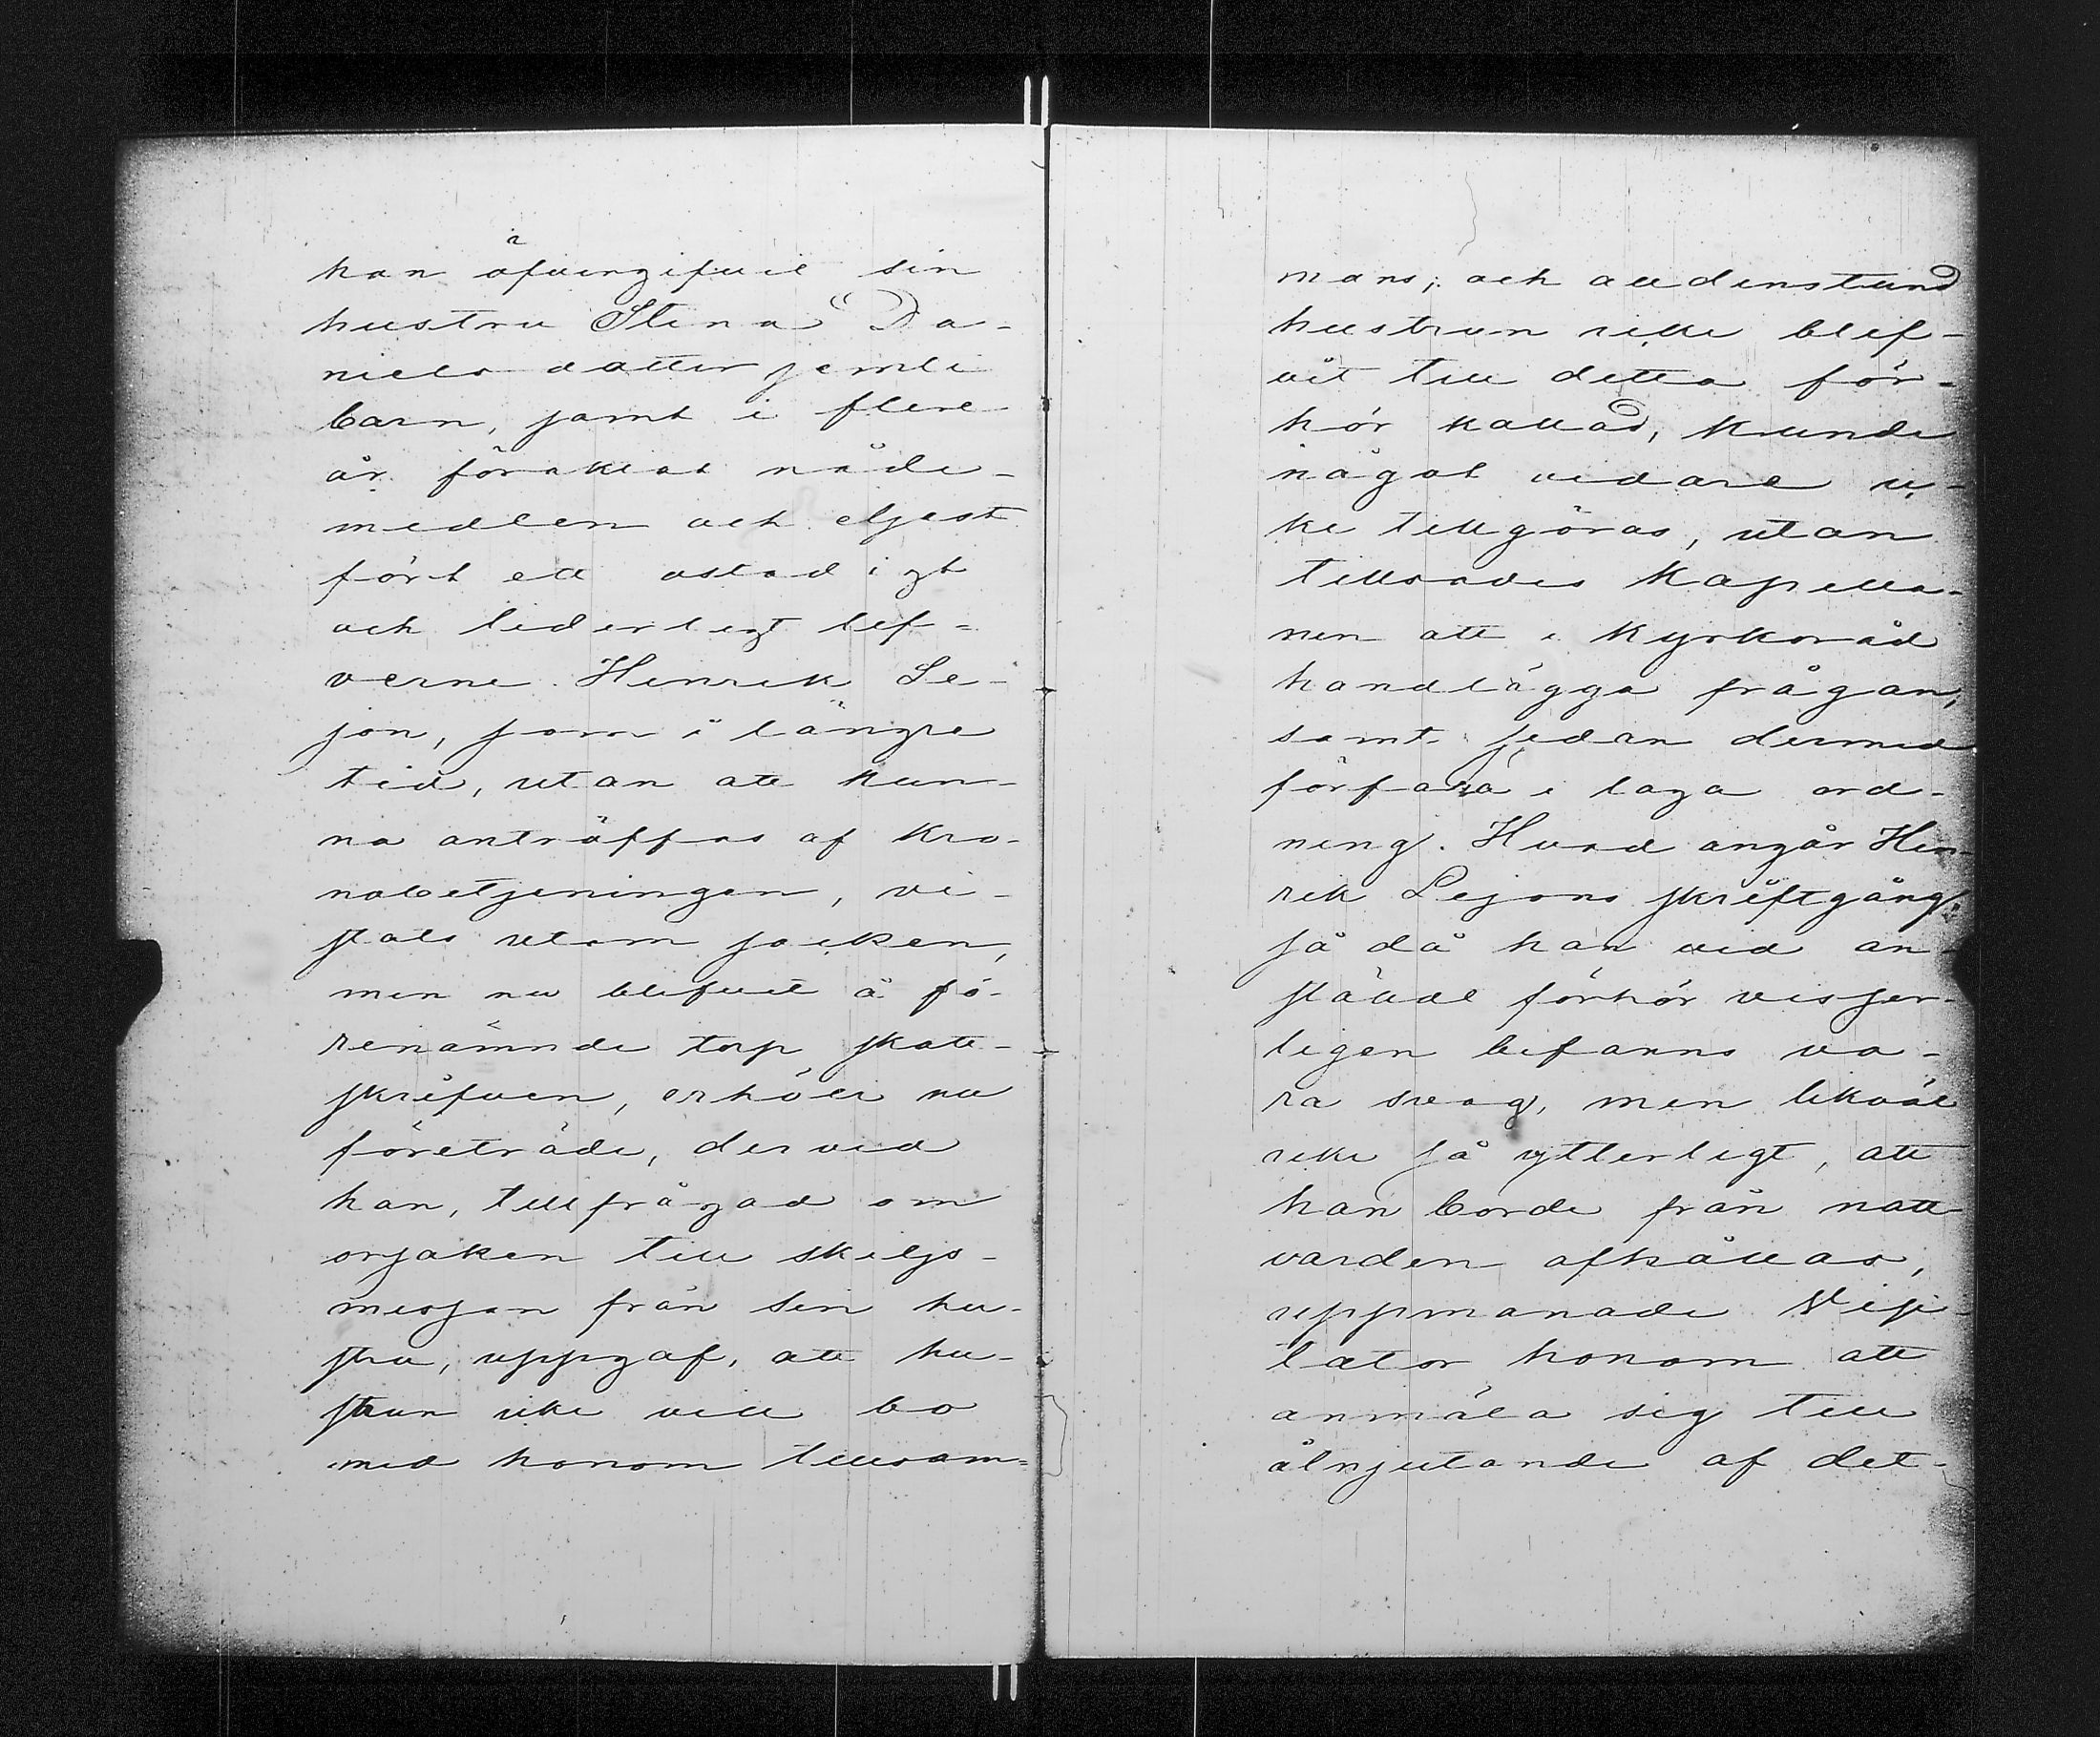 han öfvergifvit sin
hustru Stina Da-
niels dotter jemte
barn, samt i flere
år föraktat nåde-
medlen och eljest
fört ett ostadigt
och liderligt lef-
verne. Henrik Le-
jon, som i längre
tid, utan att kun-
na anträffas af Kro-
nobetjeningen, vi-
stats utom socken,
men nu blifvit å fö-
renämnde torp skatt-
skrifven, erhöll nu
företräde, dervid
han, tillfrågad om
orsaken till skiljs-
messan från sin hu-
stru, uppgaf, att hu-
strun icke vill bo
med honom tillsam-
mans; och alldenstund
hustrun icke blef-
vit till detta för-
hör kallad, kunde
något vidare ic-
ke tillgöras, utan
tillsades Kapella-
nen att i Kyrkoråd
handlägga frågan,
samt sedan dermed
förfara i laga ord-
ning. Hvad angår Hen-
rik Lejons skriftgång,
så då han vid an-
stäldt förhör visser-
ligen befanns va-
ra svag, men likväl
icke så ytterligt, att
han borde från natt-
varden afhållas,
uppmanade Visi-
tator honom att
anmäla sig till
åtnjutande af det-